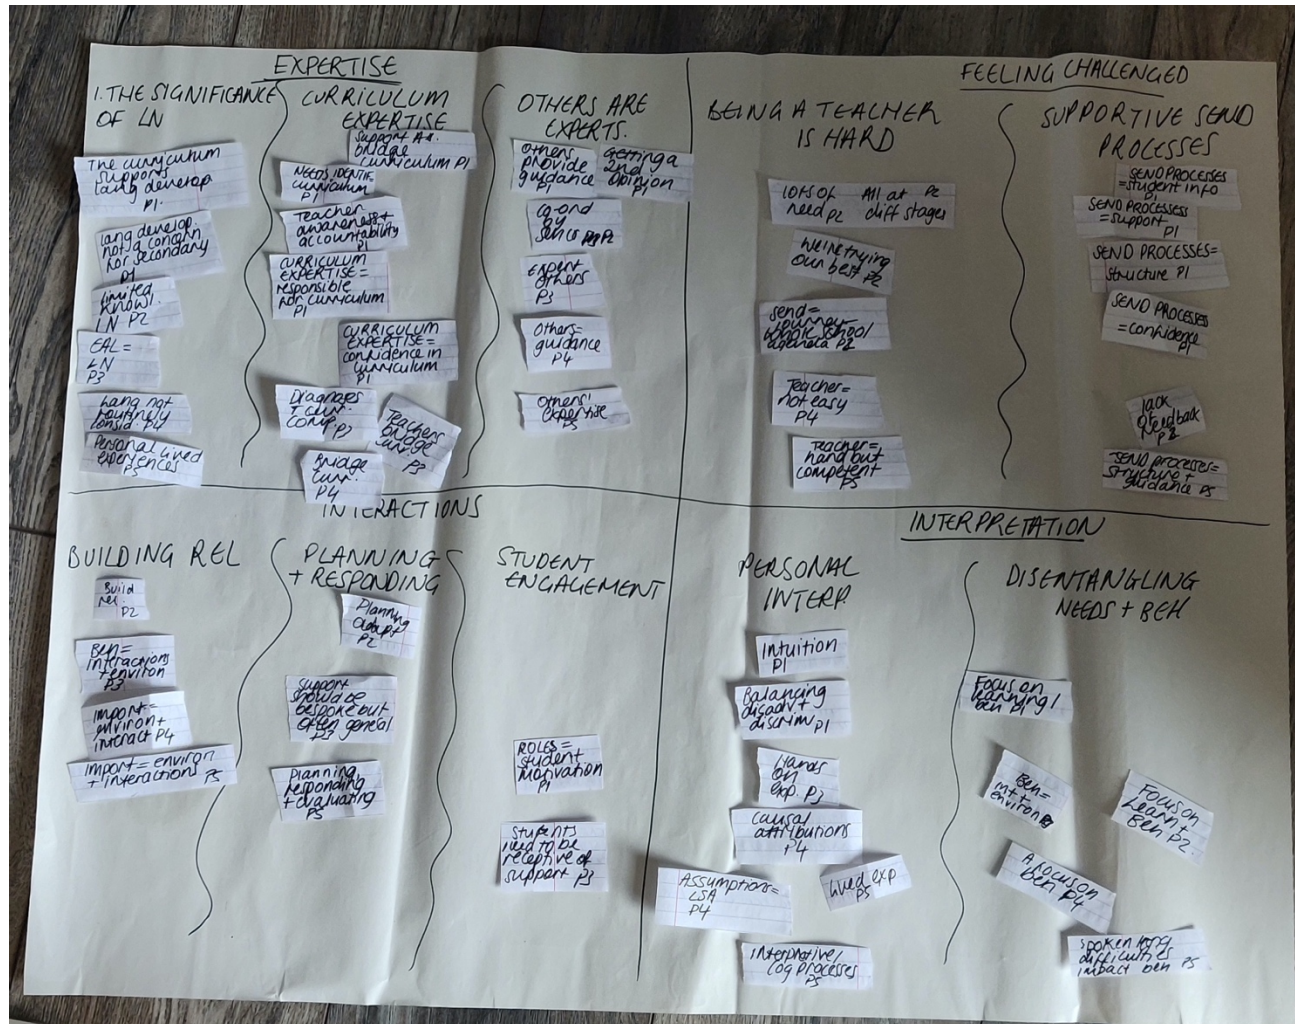 EXPERTISE
1. THE SIGNIFICANCE
OF LN
The curriculum
supports
lang develop
P1.
lang develop
not a concern
for secondary
P1
limited
knowl.
LN P2
EAL =
LN
P3
Lang not
routinely
consid. P4
Personal lived
experiences
P5
CURRICULUM
EXPERTISE
Support
bridge
curriculum P1
NEEDS IDENTIF.
curriculum
P1
Teacher
awareness +
accountability
P1
CURRICULUM
EXPERTISE =
responsible
for curriculum
P1
CURRICULUM
EXPERTISE =
confidence in
curriculum
P1
Diagnoses
curr.
comp. P3
Teachers
bridge
curr.
P3
Bridge
curr.
P4
OTHERS ARE
EXPERTS.
Others
provide
guidance
P1
Getting a
2nd
opinion
P1
co-ord
by
senco P2
Expert
others
P3
Others =
guidance
P4
Others'
expertise
P5
FEELING CHALLENGED
BEING A TEACHER
IS HARD
lots of
need P2
All at P2
diff stages
We're trying
our best P2
send =
journey
whole school
agenda P2
Teacher =
not easy
P4
Teacher =
hard but
competent
P5
SUPPORTIVE SEND
PROCESSES
SEND PROCESSES
= student info
P1
SEND PROCESSESS
= support
P1
SEND PROCESSES =
structure P1
SEND PROCESSES
= confidence
P1
lack
of feedback
P2
SEND PROCESSES =
structure +
guidance P5
INTERACTIONS
BUILDING REL
Build
rel.
P2
Beh =
interactions
+ environ
P3
Import =
environ +
interact P4
Import = environ
+ interactions P5
PLANNING
+ RESPONDING
Planning
adapt
P2
Support
should be
bespoke but
often general
P3
Planning,
responding
+ evaluating
P5
STUDENT
ENGAGEMENT
ROLES =
student
motivation
P1
Students
need to be
receptive of
support P3
INTERPRETATION
PERSONAL
INTERP.
Intuition
P1
Balancing
disadv +
discrim P1
Hands
on
exp. P3
Causal
attributions
P4
Assumptions =
LSA
P4
Lived exp
P5
Interpretive/
cog processes
P5
DISENTANGLING
NEEDS + BEH
Focus on
learning /
beh P1
Beh =
environ
Focus on
learn +
Beh P2
A focus on
beh P4
Spoken lang
difficulties
impact beh P5